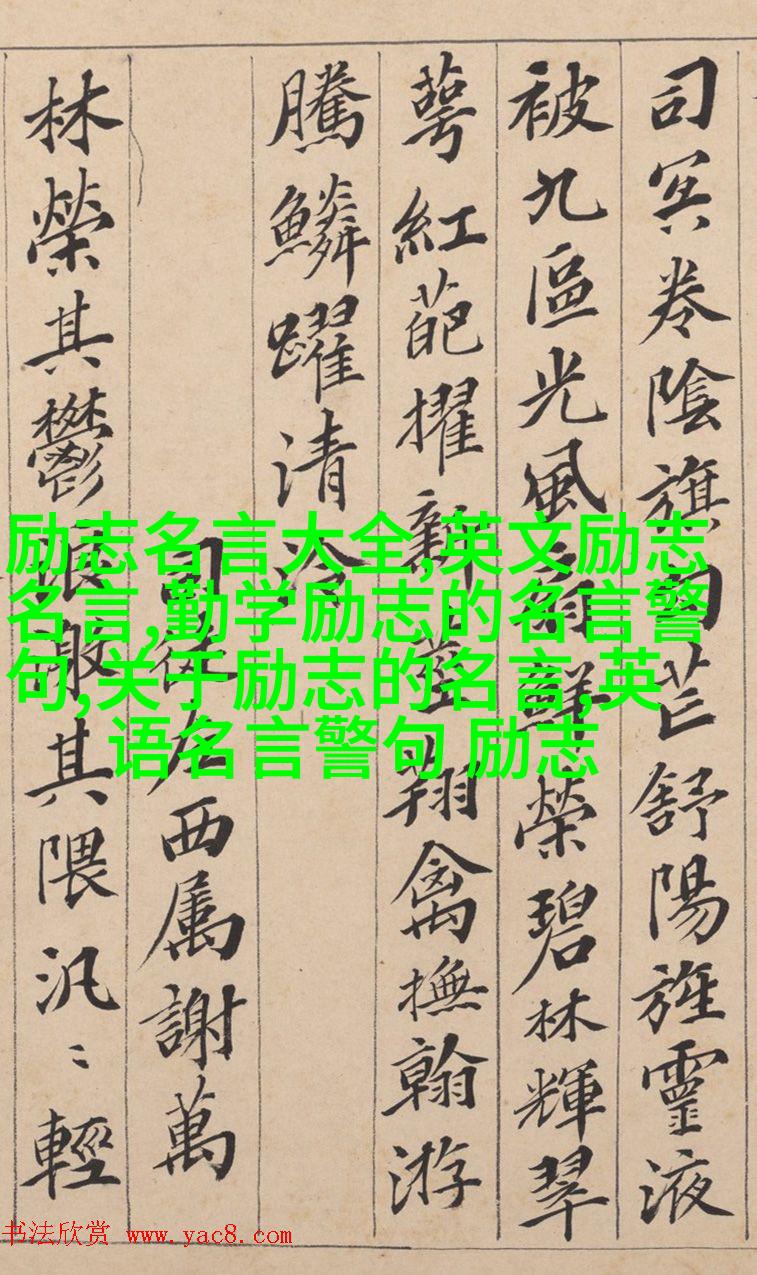 司冥卷陰旗句芒舒陽旌靈液
被九區光風扇鮮榮碧林輝翠
萼紅葩擢新莖翔禽撫翰游
騰鱗躍清泠
司徒左西属謝萬
林榮其鬱浪激其隈汎〻輕
励志名言大全,英文励志
名言,勤学励志的名言警
句,关于励志的名言,英
语名言警句 励志
书法欣赏 www.yac8.com